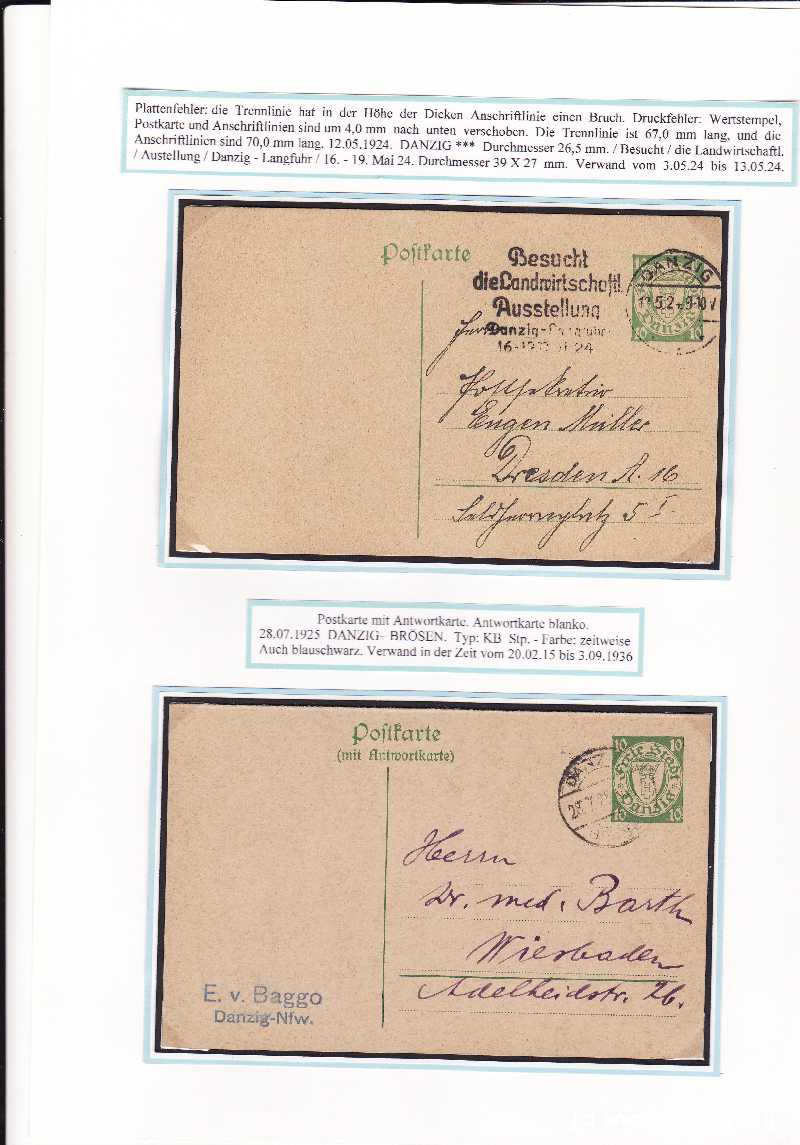 Plattenfehler: die Trennlinie hat in der Höhe der Dicken Anschriftlinie einen Bruch. Druckfehler: Wertstempel,
Postkarte und Anschriftlinien sind um 4,0 mm nach unten verschoben. Die Trennlinie ist 67,0 mm lang, und die
Anschriftlinien sind 70,0 mm lang. 12.05.1924. DANZIG *** Durchmesser 26,5 mm. / Besucht / die Landwirtschaftl.
/ Austellung / Danzig - Langfuhr / 16. - 19. Mai 24. Durchmesser 39 X 27 mm. Verwand vom 3.05.24 bis 13.05.24.
Postkarte
Besucht
die Landwirtschaftl.
Ausstellung
Danzig-
16-19 24
DANZIG
5.2 9-10V
Danzig
10
Herrn
Postsekretär
Eugen Müller
Dresden A. 16
5 I
Postkarte mit Antwortkarte. Antwortkarte blanko.
28.07.1925 DANZIG- BRÖSEN. Typ: KB Stp. - Farbe: zeitweise
Auch blauschwarz. Verwand in der Zeit vom 20.02.15 bis 3.09.1936
Postkarte
(mit Antwortkarte)
10 10
Freie Stadt
Danzig
10 10
DANZ
28.7.2
Herrn
Dr. med. Barth
Wiesbaden
Adelheidstr. 26.
E. v. Baggo
Danzig-Nfw.